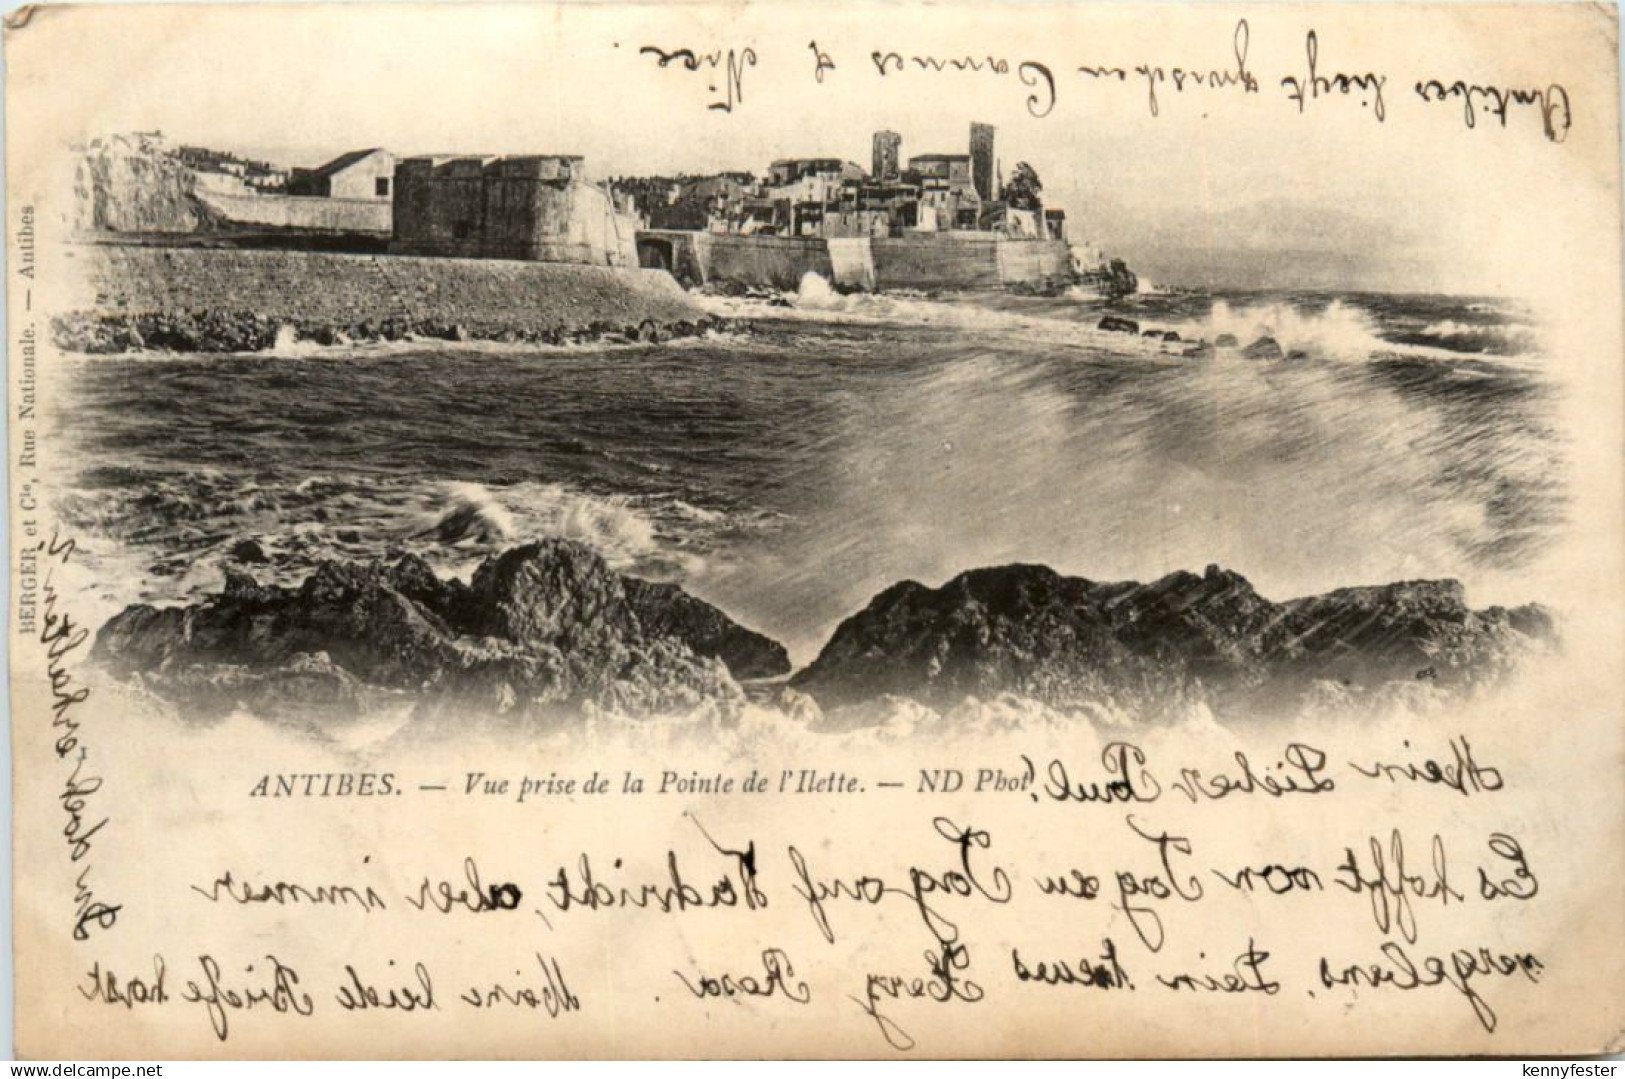 Antibes liegt zwischen Cannes & Nice.
BERGER et Cie, Rue Nationale. — Antibes
ANTIBES. — Vue prise de la Pointe de l'Ilette. — ND Phot.
Mein Lieber Paul!
Es hofft von Tag zu Tag auf Nachricht, aber immer
vergebens. Dein treues Herz Rosa. Meine beide Briefe hast
Du doch erhalten?
delcampe.net
kennyfester